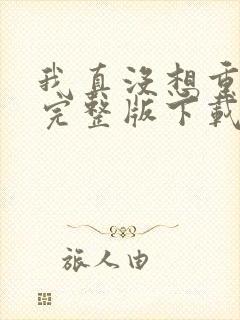 我真没想重
完整版下载
旅人由